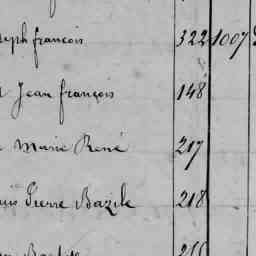 seph françois 322 1007
Jean françois 148
Marie René 217
uis Pierre Bazile 218